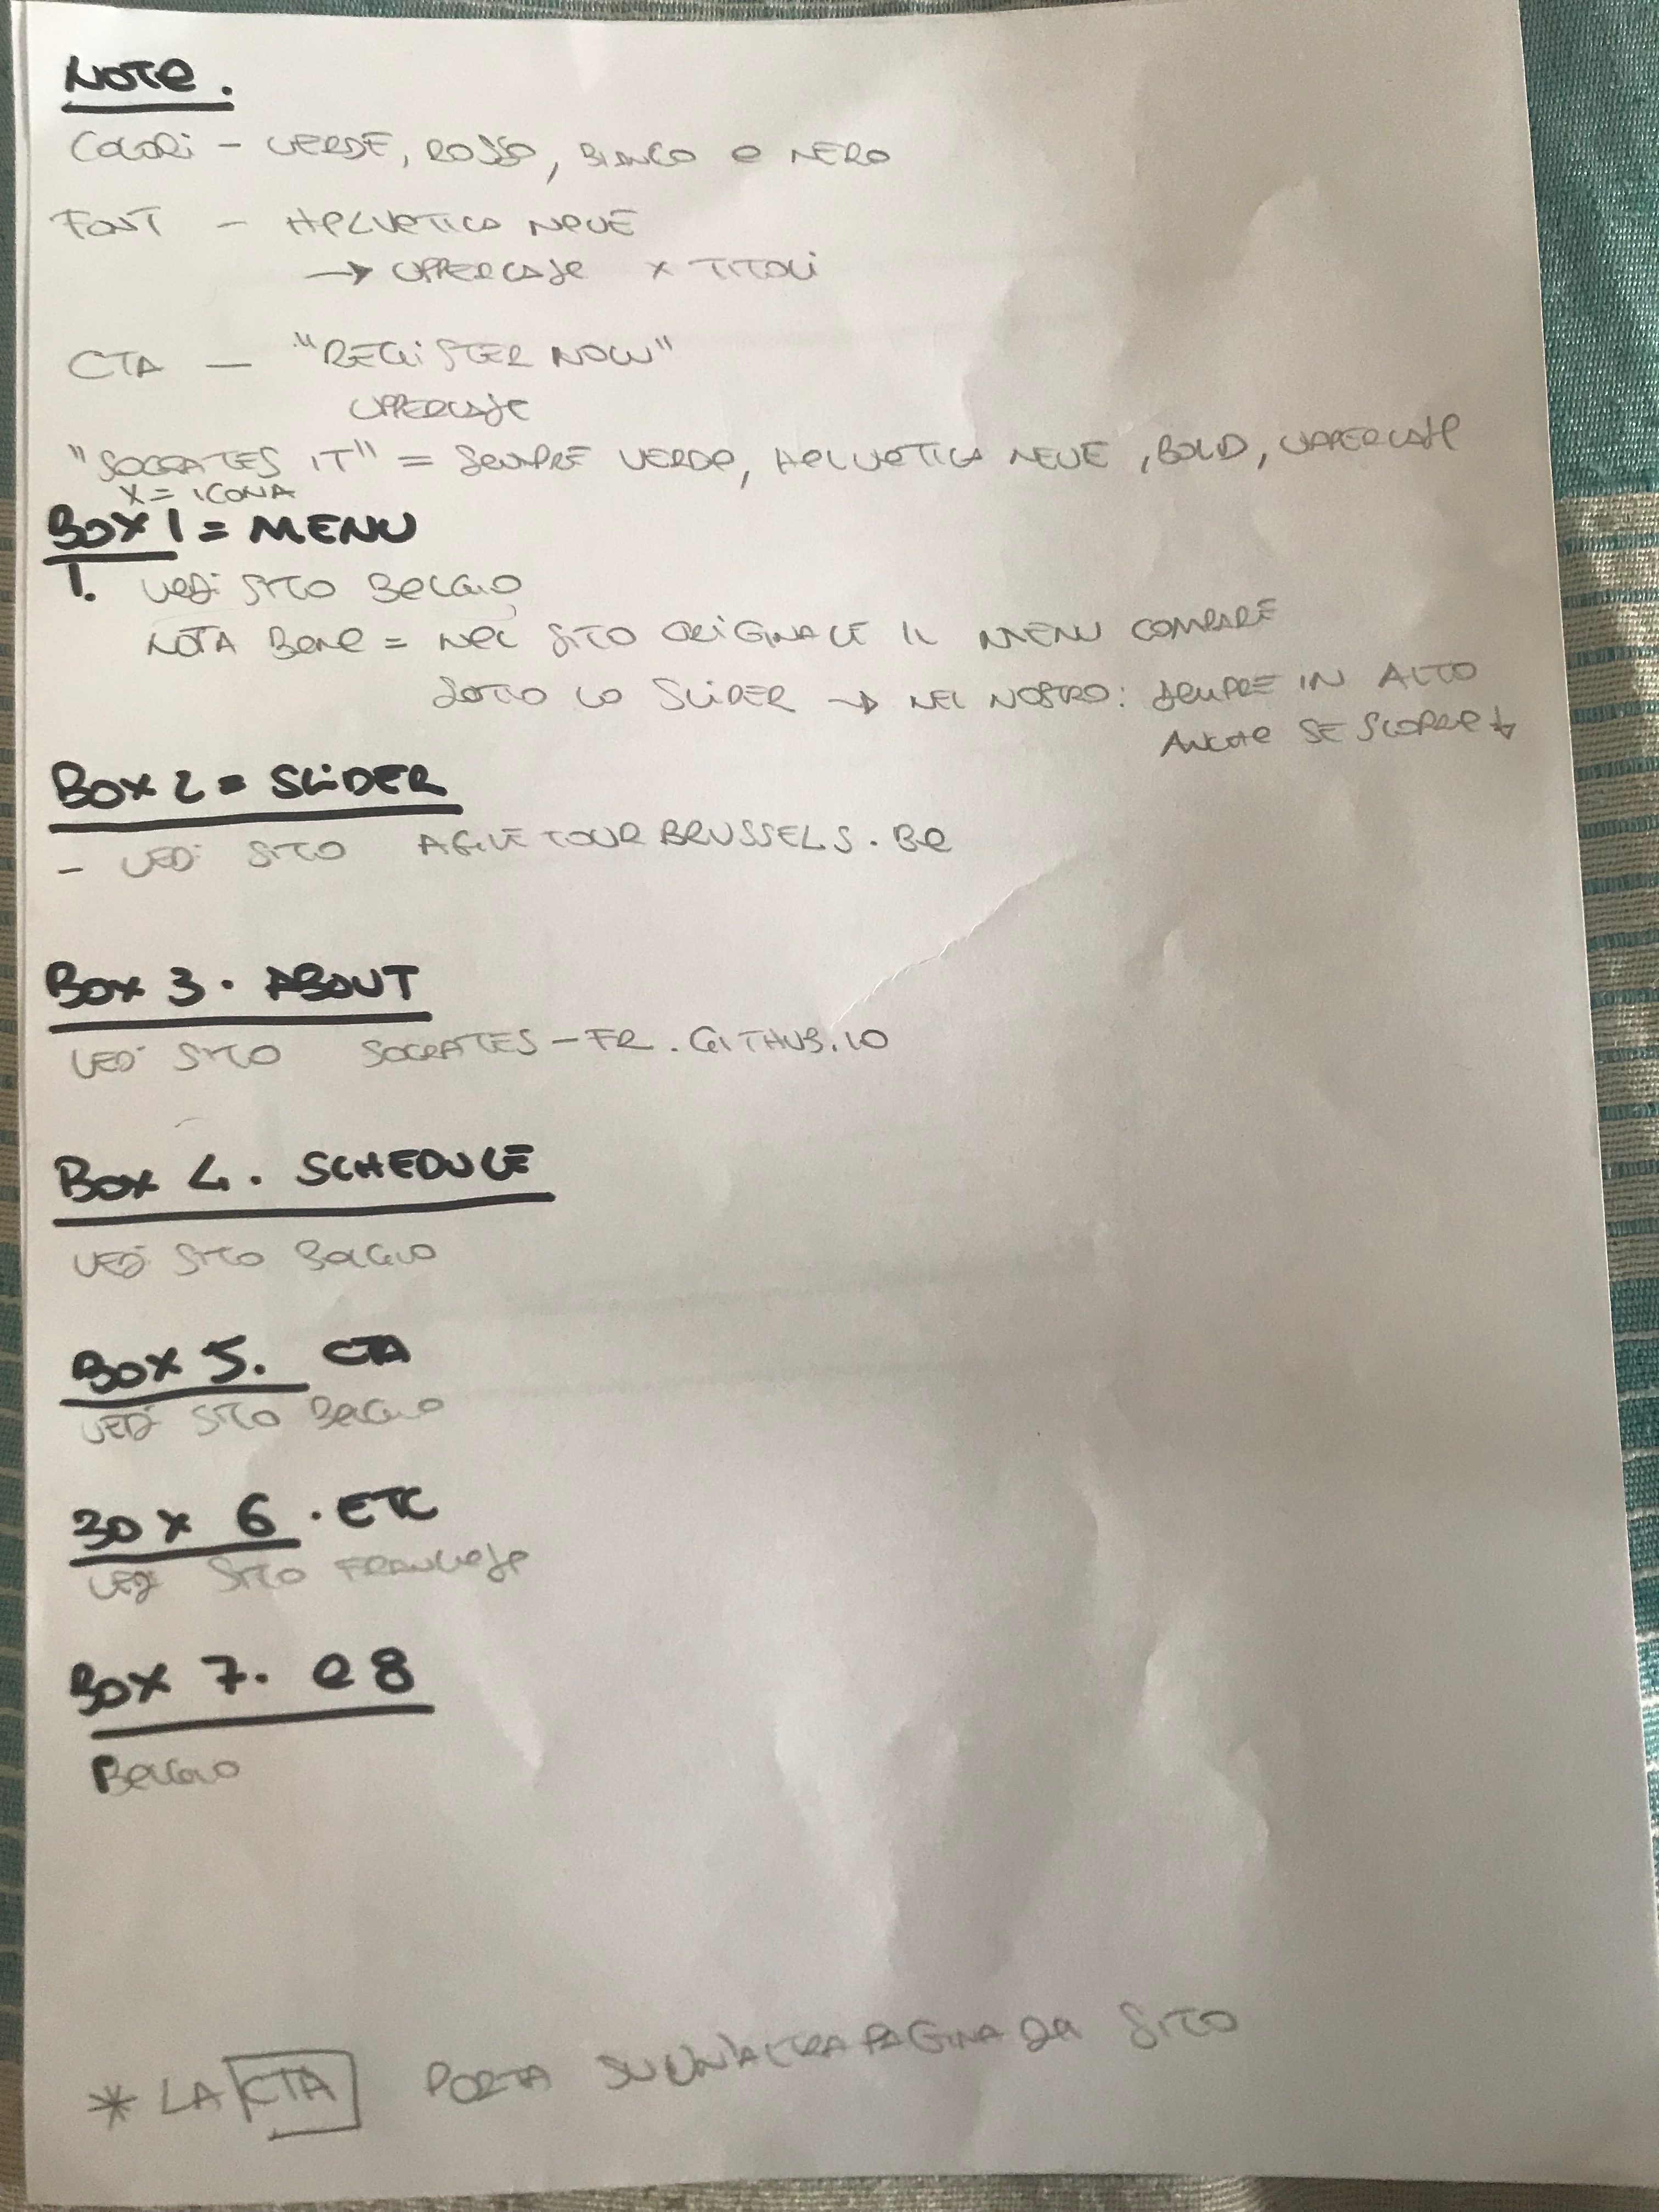 NOTE.
COLORI - VERDE, ROSSO, BIANCO e NERO
FONT - HELVETICA NEUE
→ UPPERCASE X TITOLI
CTA - "REGISTER NOW"
UPPERCASE
"SOCRATES IT" = SEMPRE VERDE, HELVETICA NEUE, BOLD, UPPERCASE
X = ICONA
BOX 1 = MENU
1. VEDI SITO BELGIO
NOTA BENE = NEL SITO ORIGINALE IL MENU COMPARE
SOTTO LO SLIDER → NEL NOSTRO: SEMPRE IN ALTO
ANCHE SE SCORRE ↓
BOX 2 = SLIDER
- VEDI SITO AGILETOURBRUSSELS.BE
BOX 3. ABOUT
VEDI SITO SOCRATES-FR.GITHUB.IO
BOX 4. SCHEDULE
VEDI SITO BELGIO
BOX 5. CTA
VEDI SITO BELGIO
BOX 6. ETC
VEDI SITO FRANCESE
BOX 7. e 8
BELGIO
* LA CTA PORTA SU UN'ALTRA PAGINA DEL SITO